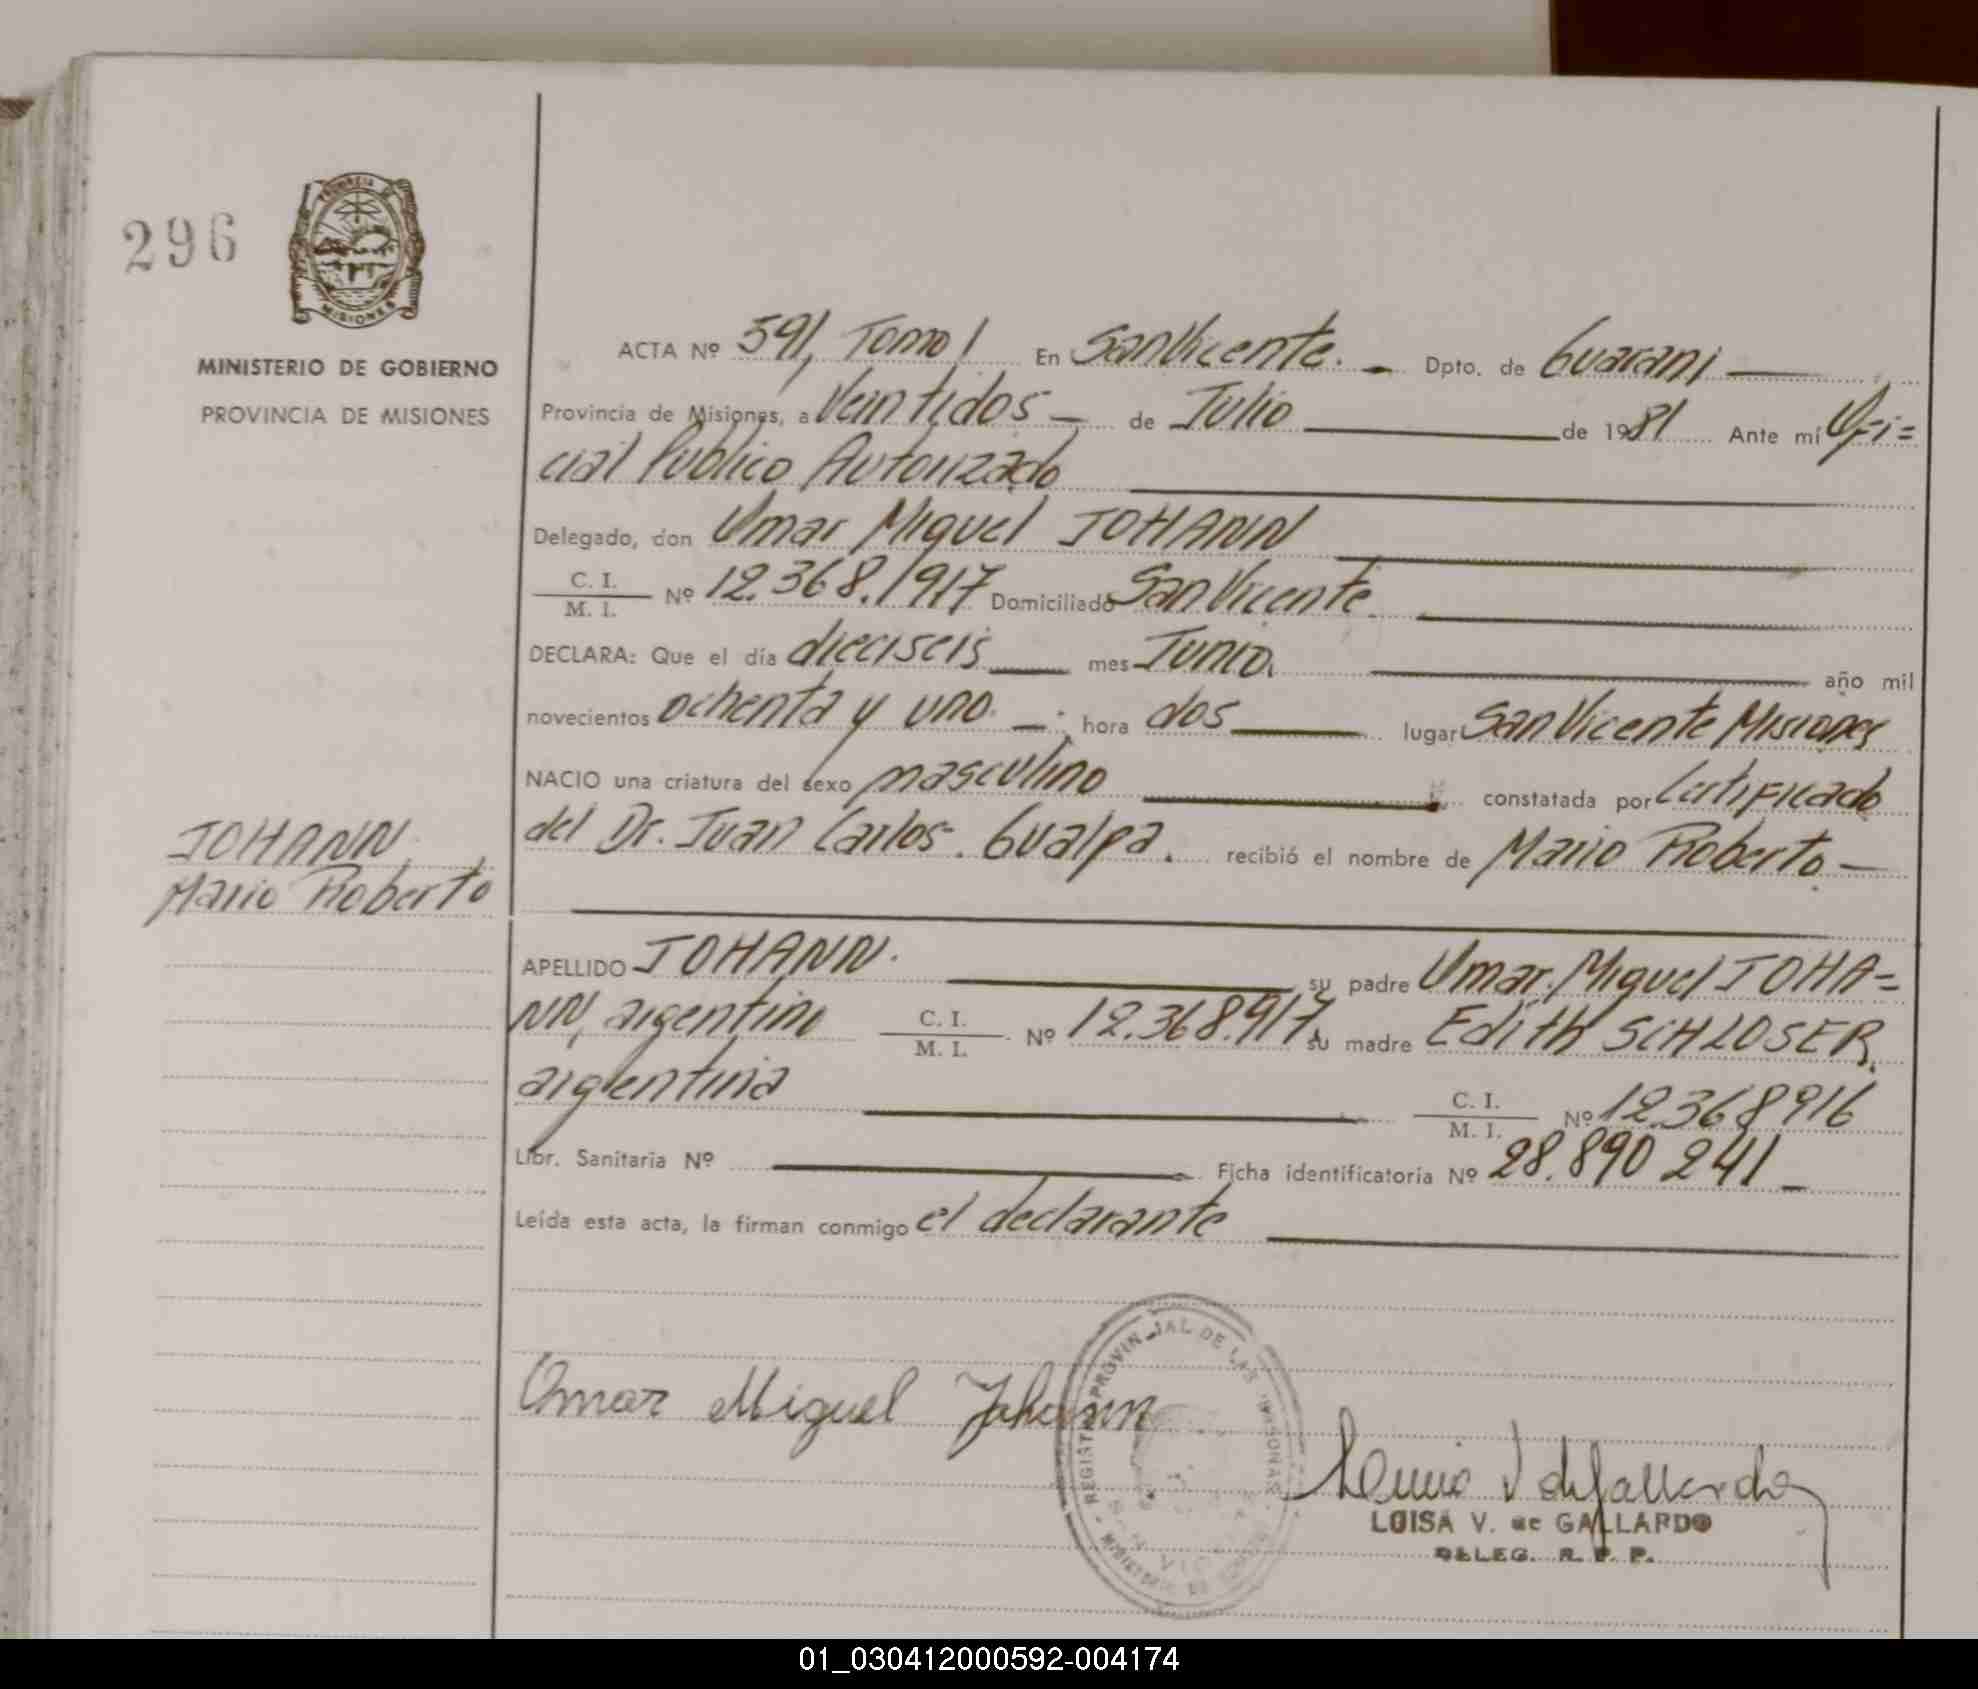 296
PROVINCIA DE
MISIONES
MINISTERIO DE GOBIERNO
PROVINCIA DE MISIONES
ACTA Nº 591, Tomo I En San Vicente. Dpto. de Guarani
Provincia de Misiones, a Veintidos de Julio de 1981 Ante mí Ofi=
cial Publico Autorizado
Delegado, don Omar Miguel JOHANN
C. I.
M. I. Nº 12.368.917 Domiciliado San Vicente
DECLARA: Que el día dieciseis mes Junio. año mil
novecientos ochenta y uno. hora dos lugar San Vicente Misiones
NACIO una criatura del sexo masculino constatada por Certificado
del Dr. Juan Carlos. Gualpa. recibió el nombre de Mario Roberto
JOHANN,
Mario Roberto
APELLIDO JOHANN. su padre Omar. Miguel JOHA=
NN, argentino C. I.
M. I. Nº 12.368.917, su madre Edith SCHLOSER.
argentina C. I.
M. I. Nº 12.368916
Libr. Sanitaria Nº Ficha identificatoria Nº 28.890 241
Leída esta acta, la firman conmigo el declarante
Omar Miguel Johann
REGISTRO PROVINCIAL DE LAS PERSONAS
LUISA V. de GALLARDO
DELEG. R. P. P.
01_030412000592-004174